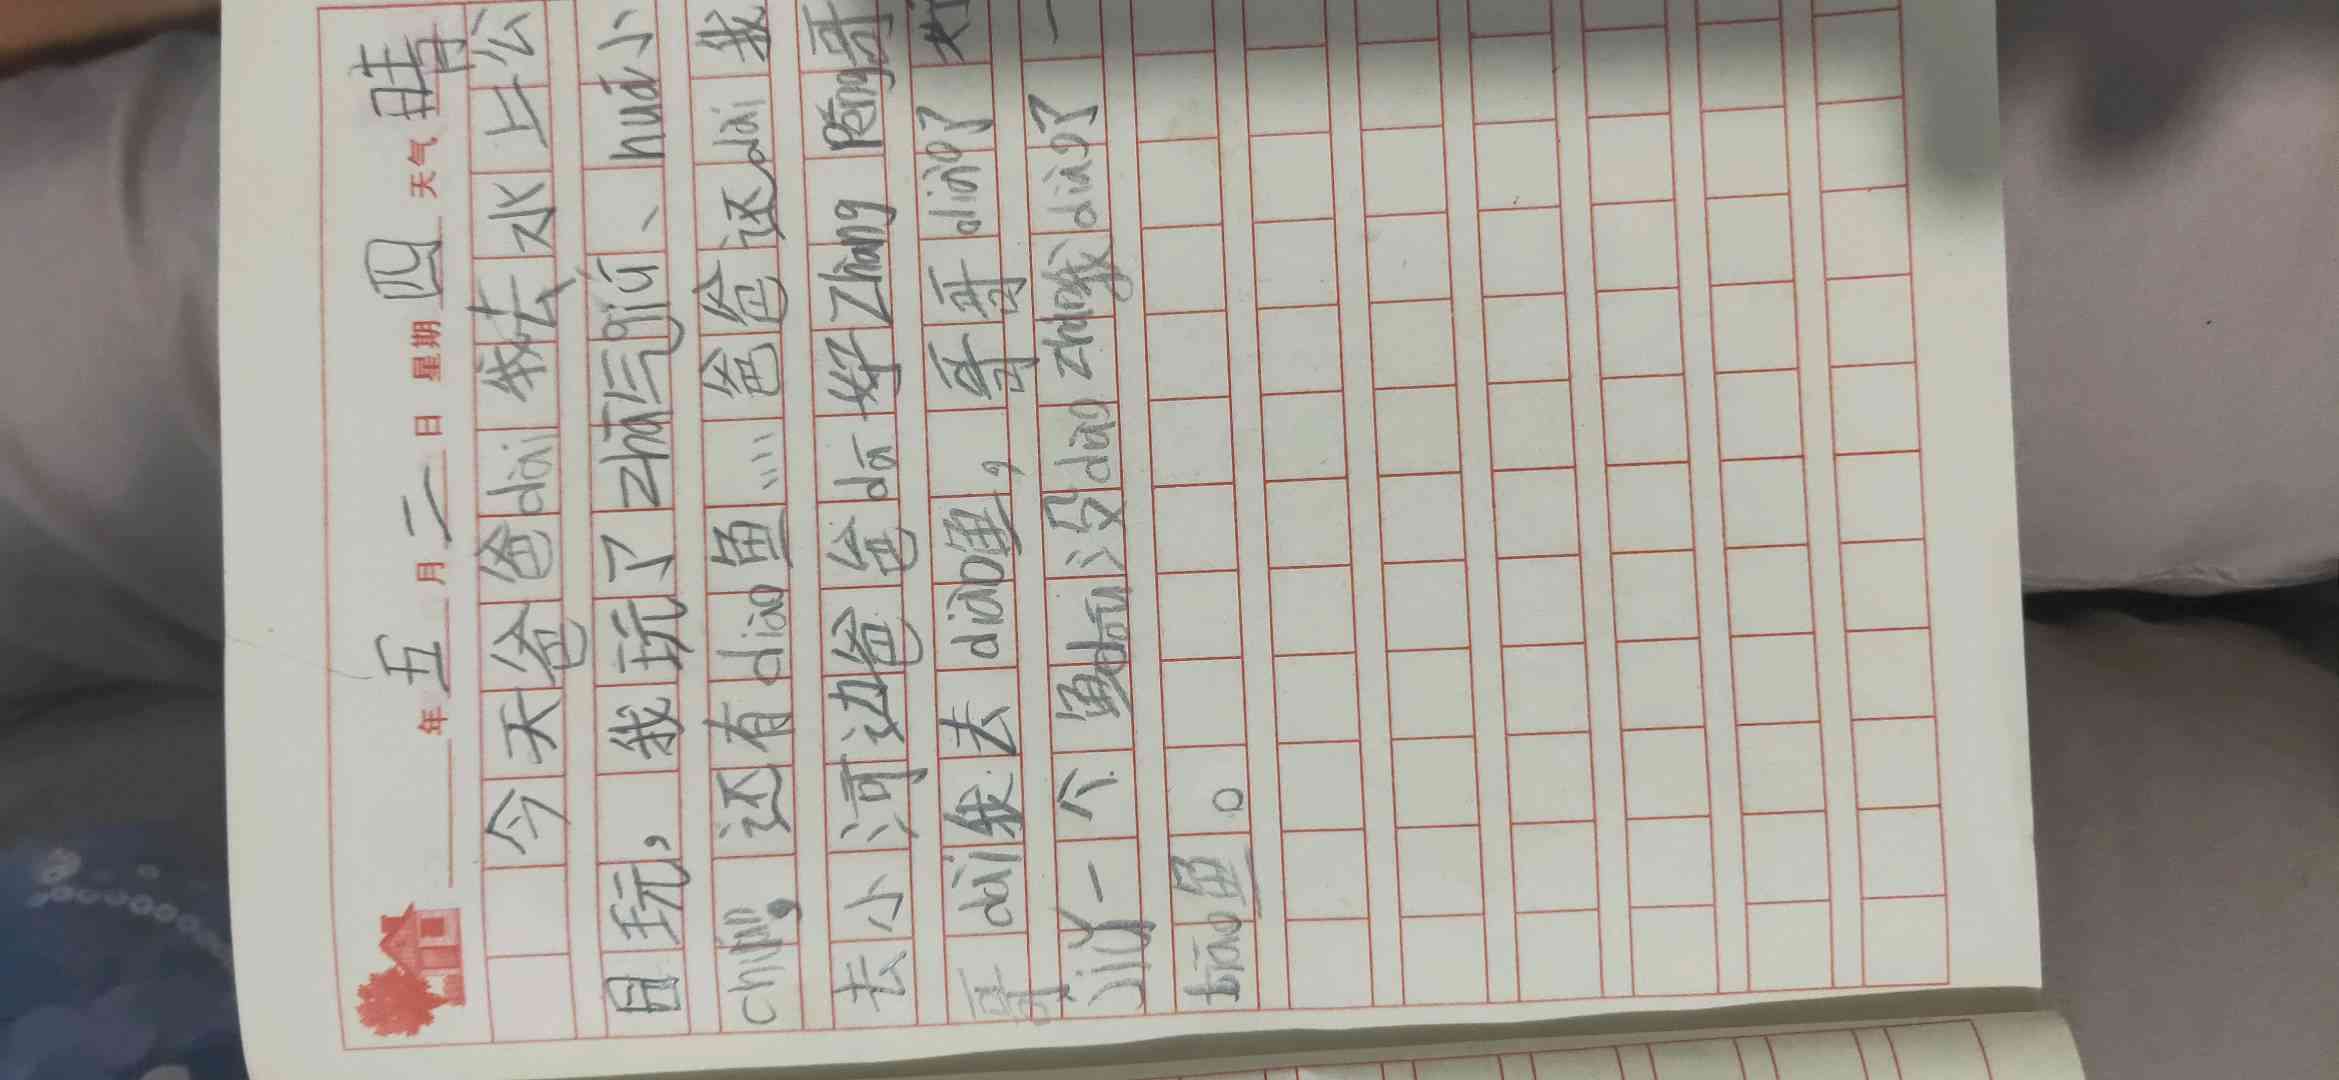 年五月二日 星期四 天气晴
今天爸爸dài我去水上公
目玩，我玩了zhāi三qiú、huá小
chuán，还有diào鱼……爸爸还dài我
去小河边爸爸dā好zhàng péng哥
哥dài我去diào鱼，哥哥diào了
jiǔ一个鱼dōu没dào zhǐ我diào了一
tiāo鱼。